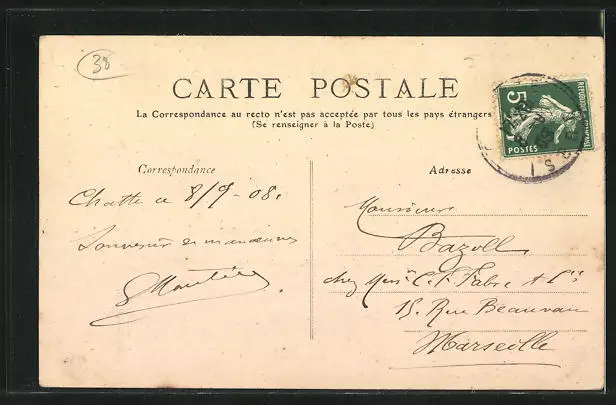 38
CARTE POSTALE
La Correspondance au recto n'est pas acceptée par tous les pays étrangers
(Se renseigner à la Poste)
5
POSTES
Correspondance
Chatte le 8/9-08.
Souvenir de manœuvres
Adresse
Monsieur
Bazoll
chez Mess. C. F. Fabre & Cie
15, Rue Beauvau
Marseille